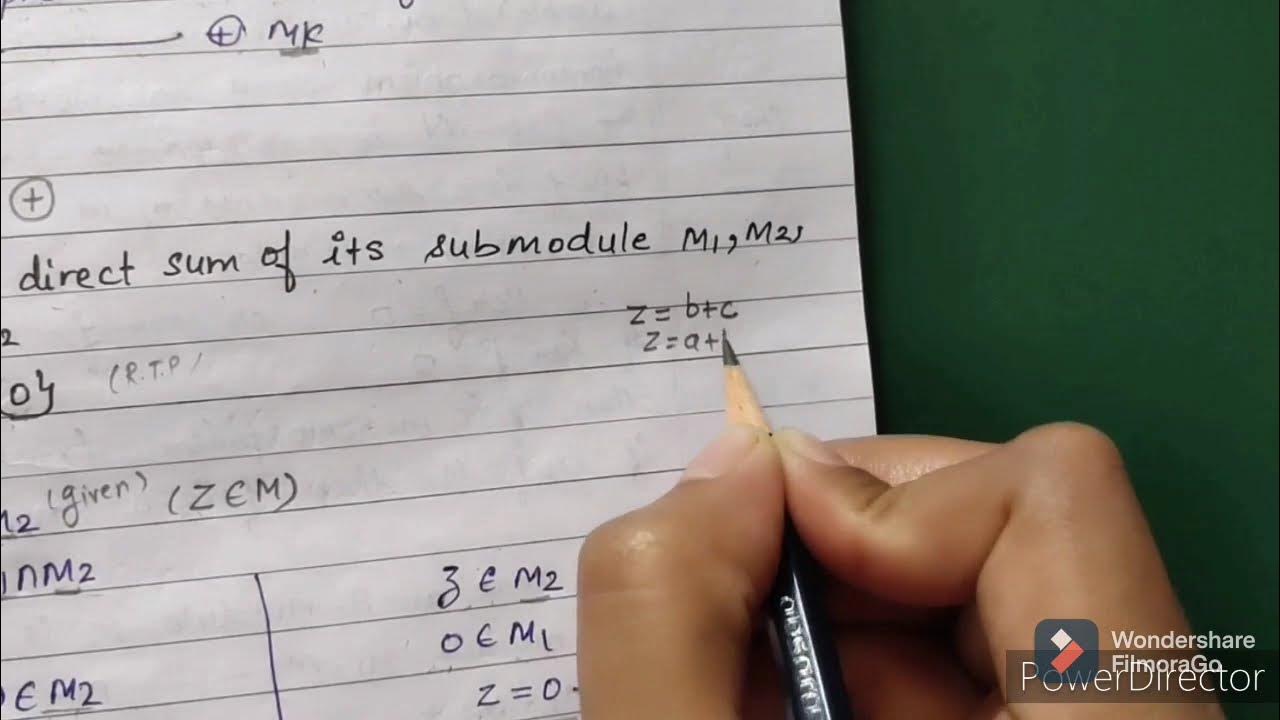 ⊕ MK
⊕
direct sum of its submodule M1, M2,
z = b+c
2
z = a+
0} (R.T.P)
M2 (given) (Z∈M)
∩M2
z ∈ M2
0 ∈ M1
∈ M2
z = 0
DOMS
Wondershare
FilmoraGo
PowerDirector